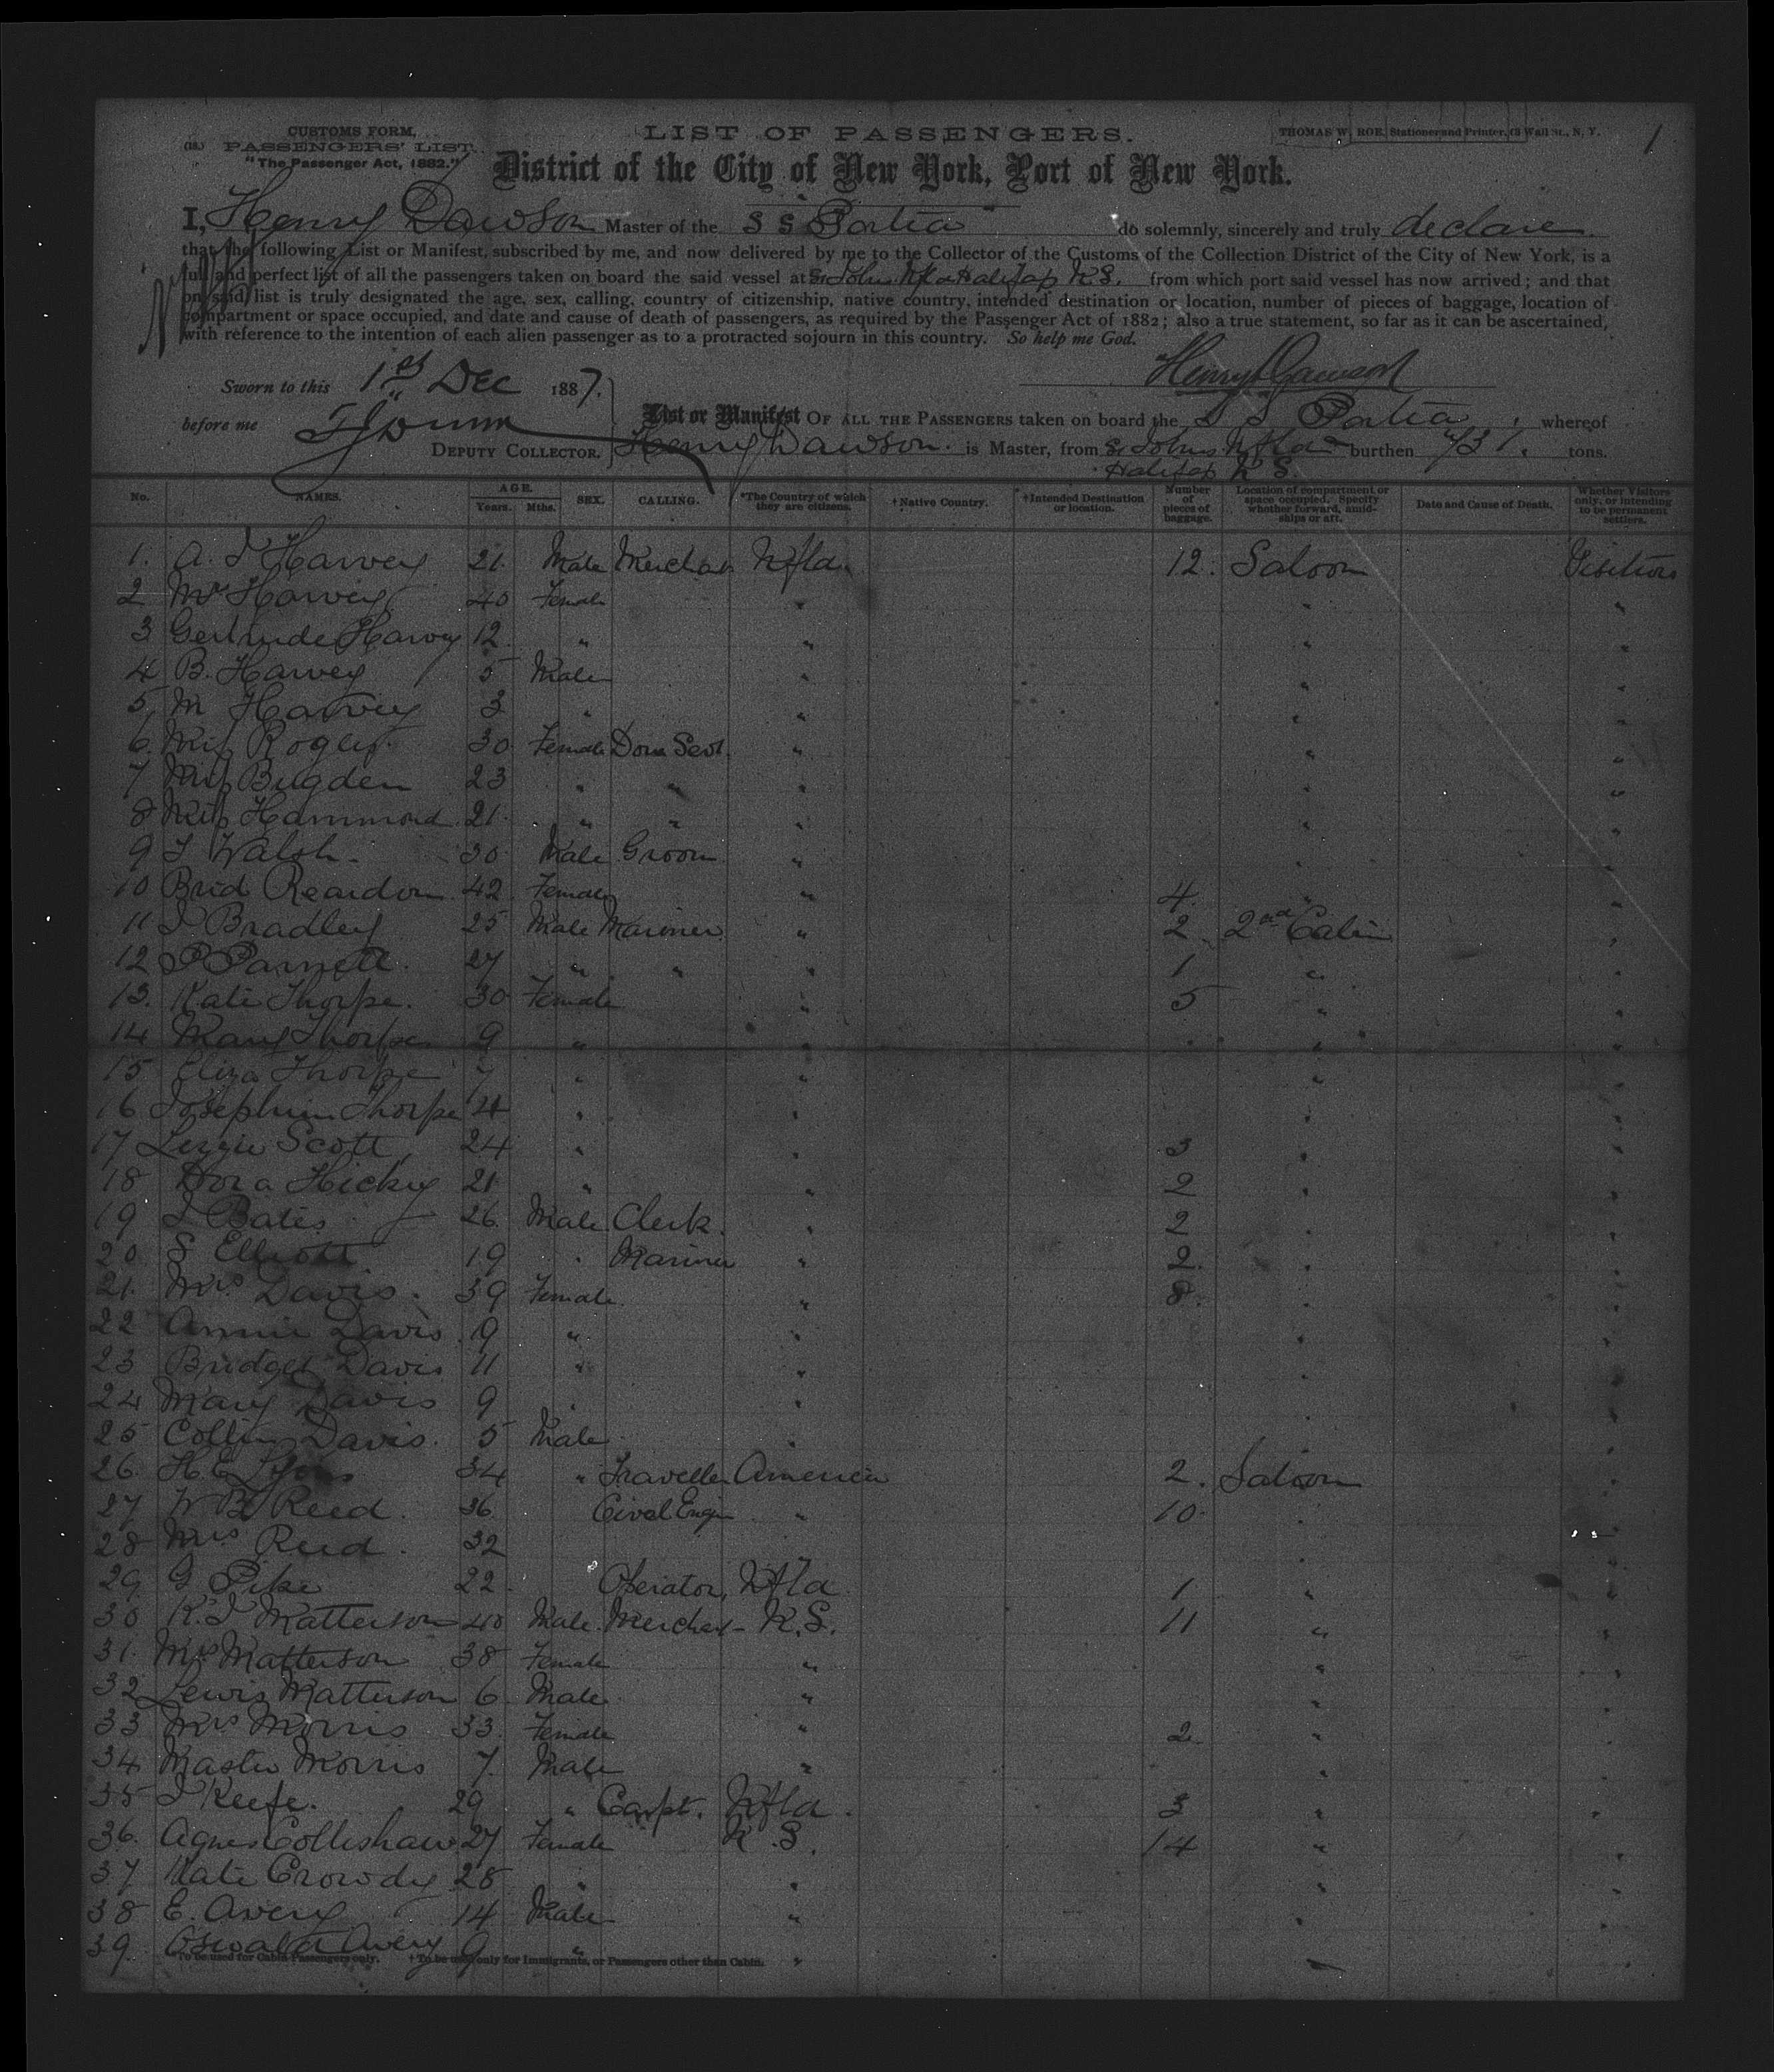 CUSTOMS FORM,
PASSENGERS' LIST.
"The Passenger Act, 1882."
LIST OF PASSENGERS.
THOMAS W. ROE, Stationer and Printer, 63 Wall St., N. Y.
1
District of the City of New York, Port of New York.
I, Henry Dawson Master of the S S Portia do solemnly, sincerely and truly declare
that the following List or Manifest, subscribed by me, and now delivered by me to the Collector of the Customs of the Collection District of the City of New York, is a
full and perfect list of all the passengers taken on board the said vessel at St Johns Nfld Halifax N.S. from which port said vessel has now arrived; and that
on said list is truly designated the age, sex, calling, country of citizenship, native country, intended destination or location, number of pieces of baggage, location of
compartment or space occupied, and date and cause of death of passengers, as required by the Passenger Act of 1882; also a true statement, so far as it can be ascertained,
with reference to the intention of each alien passenger as to a protracted sojourn in this country. So help me God.
Henry Dawson
Sworn to this 1st Dec 1887.
before me
DEPUTY COLLECTOR.
List or Manifest OF ALL THE PASSENGERS taken on board the S S Portia, whereof
Henry Dawson is Master, from St Johns Nfld burthen 731. tons.
Halifax N S.
No. NAMES. AGE. Years. Mths. SEX. CALLING. *The Country of which they are citizens. †Native Country. *†Intended Destination or location. Number of pieces of baggage. Location of compartment or space occupied. Specify whether forward, amidships or aft. Date and Cause of Death. Whether Visitors only, or intending to be permanent settlers.
1. A. J Harvey 21. Male Merchat Nfld. 12. Saloon Visitors
2 Mrs Harvey 40 Female " " "
3 Gertrude Harvey 12 " " " "
4 B. Harvey 5 Male " " "
5 M Harvey 3 " " " "
6. Miss Rogers 30 Female Dom Sevt. " " "
7 Miss Bugden 23 " " " " "
8 Miss Hammond 21. " " " " "
9 J Walsh 30 Male Groom " " "
10 Brid Reardon 42 Female " 4. " "
11 J Bradley 25 Male Mariner " 2 2nd Cabin "
12 P Parnell 27 " " " 1 " "
13. Kate Thorpe. 30 Female " 5 " "
14 Mary Thorpe 9 " " " "
15 Eliza Thorpe 7 " " " "
16 Josephine Thorpe 4 " " " "
17 Lizzie Scott 24 " " 3 " "
18 Dora Hickey 21 " " 2 " "
19 J Bates 26 Male Clerk. " 2 " "
20 S Elliott 19 " Mariner " 2. " "
21. Mrs Davis. 39 Female " 8. " "
22 Annie Davis. 19 " " " "
23 Bridget Davis 11 " " " "
24 Mary Davis 9 " " " "
25 Collin Davis. 5 Male " " "
26. H E Lyons 34 " Traveller America 2. Saloon "
27 W B Reed. 36. Cival Engr " 10. " "
28 Mrs Reed. 32 " "
29 G Pike 22. Operator, Nfld 1 " "
30 R. J Matterson 40 Male Merchat N.S. 11 " "
31. Mrs Matterson 38 Female " " "
32 Lewis Matterson 6 Male " " "
33 Mrs Morris 33. Female " 2 " "
34 Master Morris 7. Male " " "
35 J Keefe. 29 " Carpt. Nfld. 3 " "
36. Agnes Colleshaw 27 Female N.S. 14 " "
37 Kate Crowdy 28 " " " "
38 E. Avery 14 Male " " "
39. Oswald Avery 9 " "
*To be used for Cabin Passengers only. †To be used only for Immigrants, or Passengers other than Cabin.